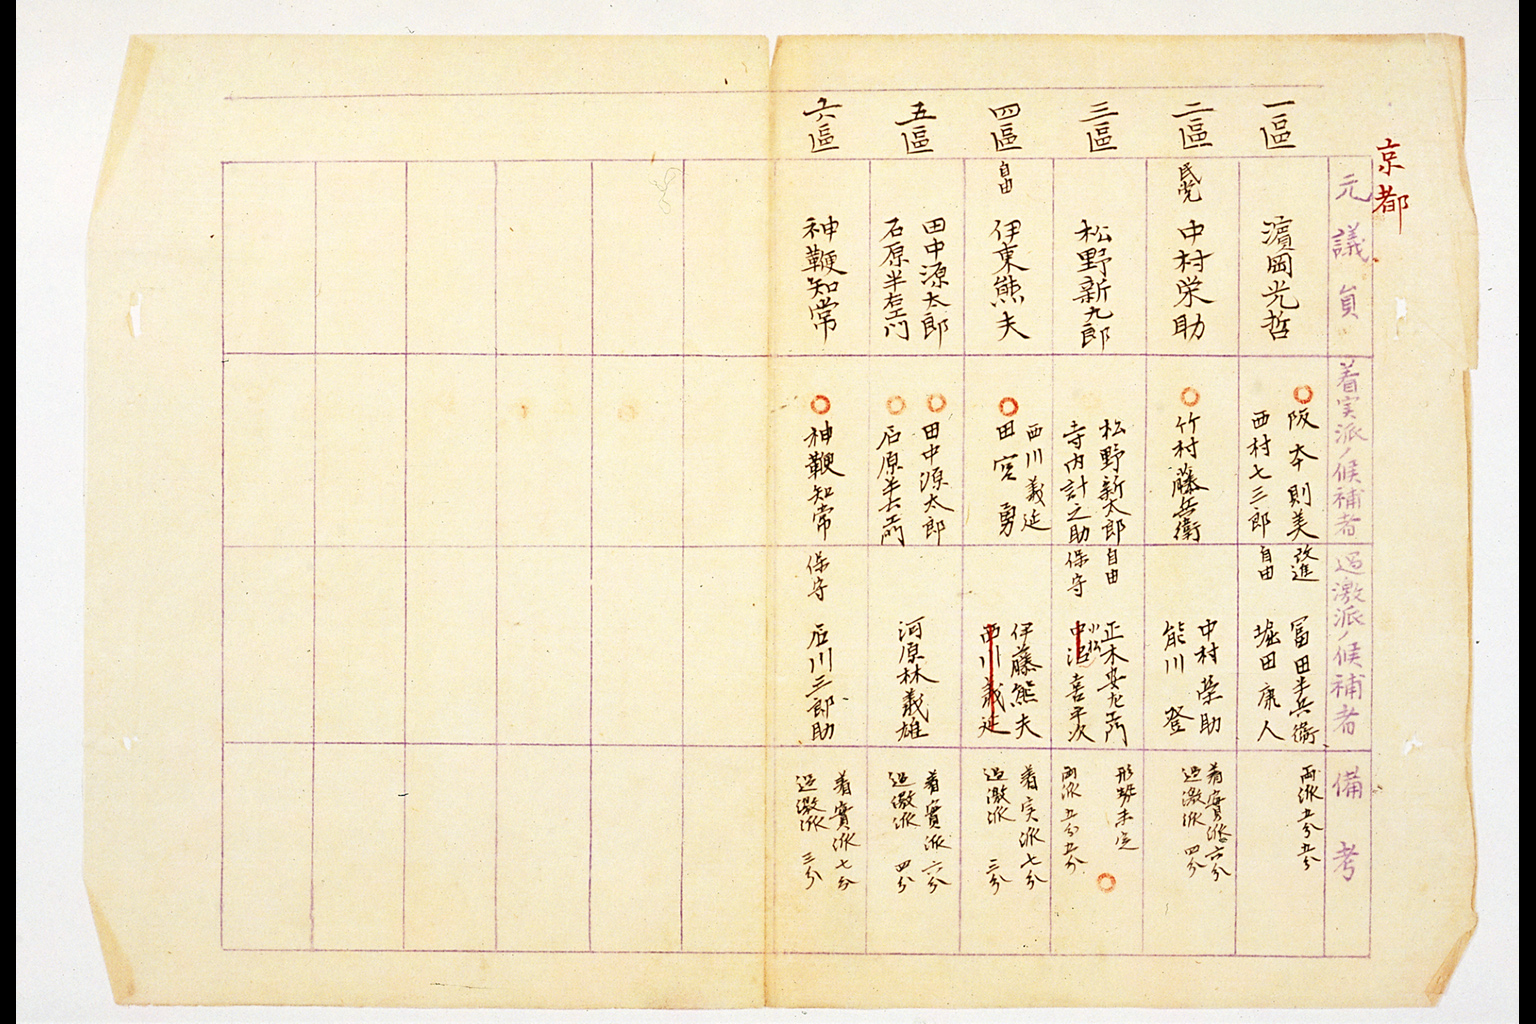 京都
元議員
着実派ノ候補者
過激派ノ候補者
備考
一區
濱岡光哲
阪本則美
西村七三郎
改進
冨田半兵衛
自由
堀田康人
両派五分五分
二區
民党
中村栄助
竹村藤兵衛
中村榮助
能川登
着實派六分
過激派四分
三區
松野新九郎
松野新太郎
寺内計之助
自由
正木安左衛門
保守
小松
中沼喜平次
形勢未定
両派五分五分
四區
自由
伊東熊夫
西川義延
田宮勇
伊藤熊夫
西川義延
着実派七分
過激派三分
五區
田中源太郎
石原半右衛門
田中源太郎
石原半右衛門
河原林義雄
着實派六分
過激派四分
六區
神鞭知常
神鞭知常
保守
石川三郎助
着實派七分
過激派三分